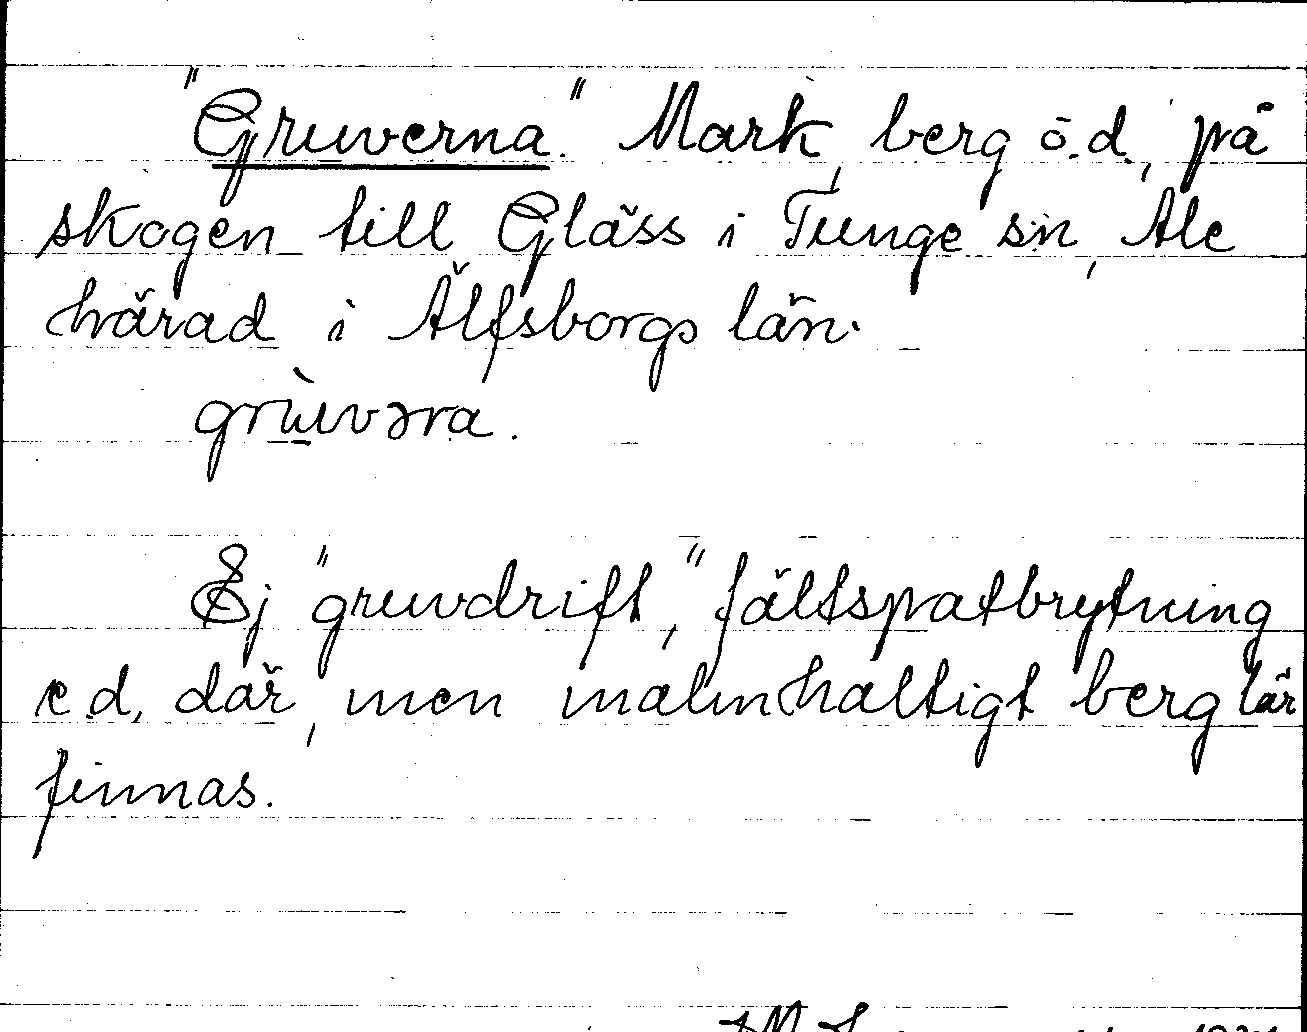 "Gruverna." Mark, berg o.d., på
skogen till Gläss i Tunge sn, Ale
härad i Älfsborgs län.
grùvəra.
Ej "gruvdrift," fältspatbrytning
e.d. där, men malmhaltigt berg lär
finnas.